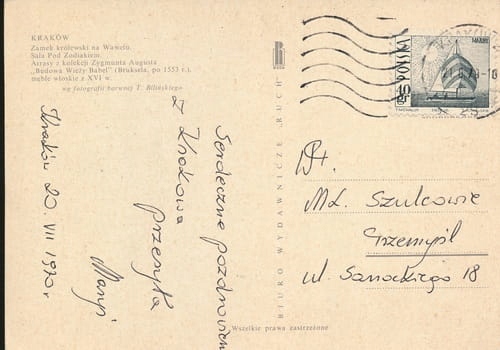 KRAKÓW
Zamek królewski na Wawelu.
Sala Pod Zodiakiem.
Arrasy z kolekcji Zygmunta Augusta
„Budowa Wieży Babel” (Bruksela, po 1553 r.),
meble włoskie z XVI w.
wg fotografii barwnej T. Bilińskiego
Serdeczne pozdrowienia
z Krakowa
przesyła
Marys
Kraków 20. VII 1970r
BIURO WYDAWNICZE „RUCH”
POLSKA
40 gr
W.P.
Mł. Szulcowie
Przemyśl
ul. Sanockiego 18
Wszelkie prawa zastrzeżone